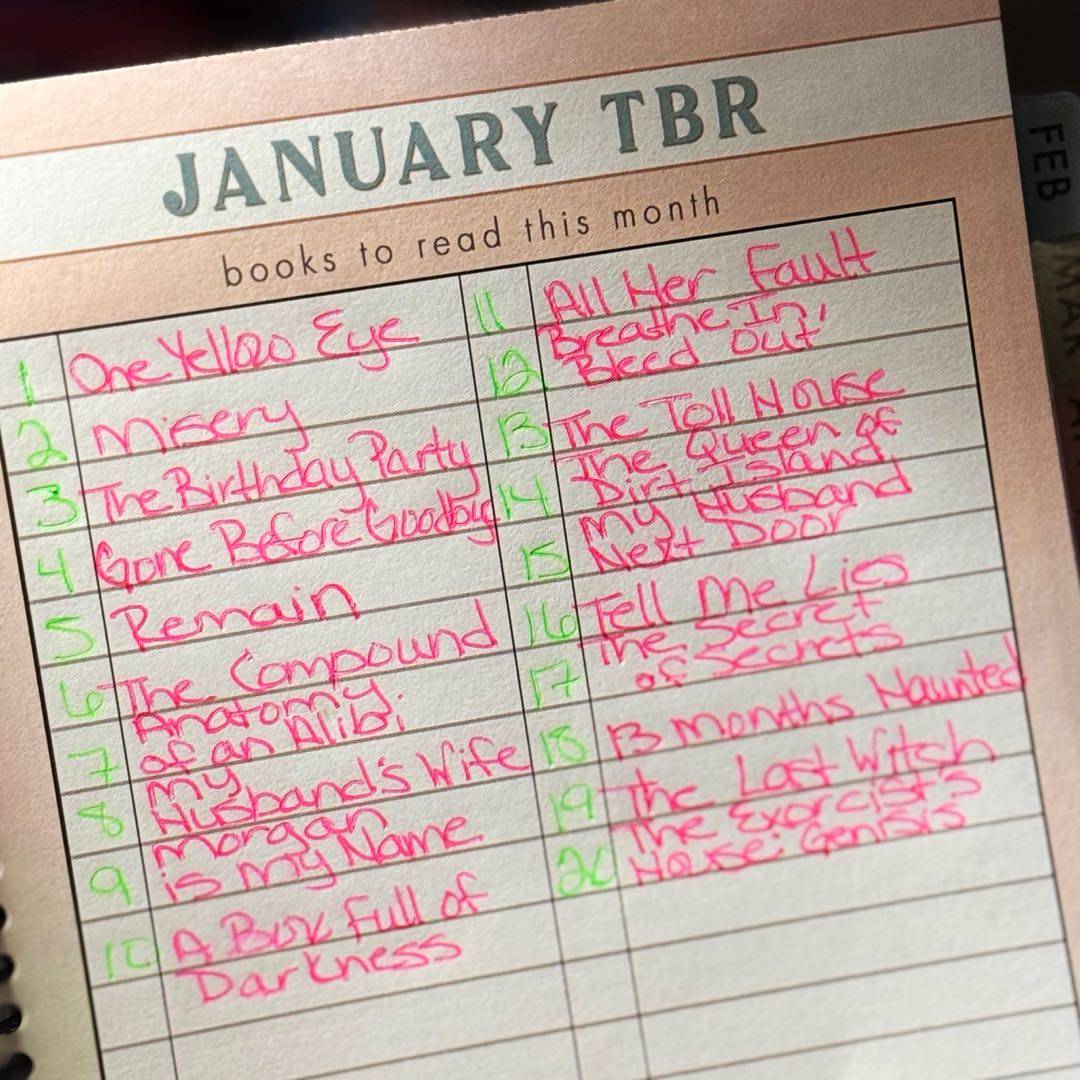 JANUARY TBR
books to read this month
1 One Yellow Eye
2 Misery
3 The Birthday Party
4 Gone Before Goodbye
5 Remain
6 The Compound
7 Anatomy
of an Alibi
8 My
Husband's Wife
9 Morgan
is my Name
10 A Box Full of
Darkness
11 All Her Fault
12 Breathe In,
Bleed Out
13 The Toll House
14 The Queen of
Dirt Island
15 My Husband
Next Door
16 Tell Me Lies
17 The Secret
of Secrets
18 13 Months Haunted
19 The Last Witch
20 The Exorcist's
House: Genisis
FEB
MAR